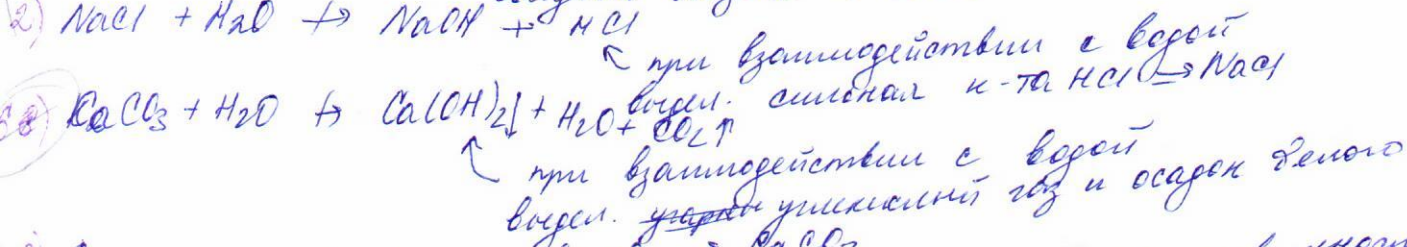 2) NaCl + H2O ↛ NaOH + HCl
при взаимодействии с водой
выдел. сильная к-та HCl → NaCl
CaCO3 + H2O ↛ Ca(OH)2↓ + H2O + CO2↑
при взаимодействии с водой
выдел. углекислый газ и осадок белого
CaCO3